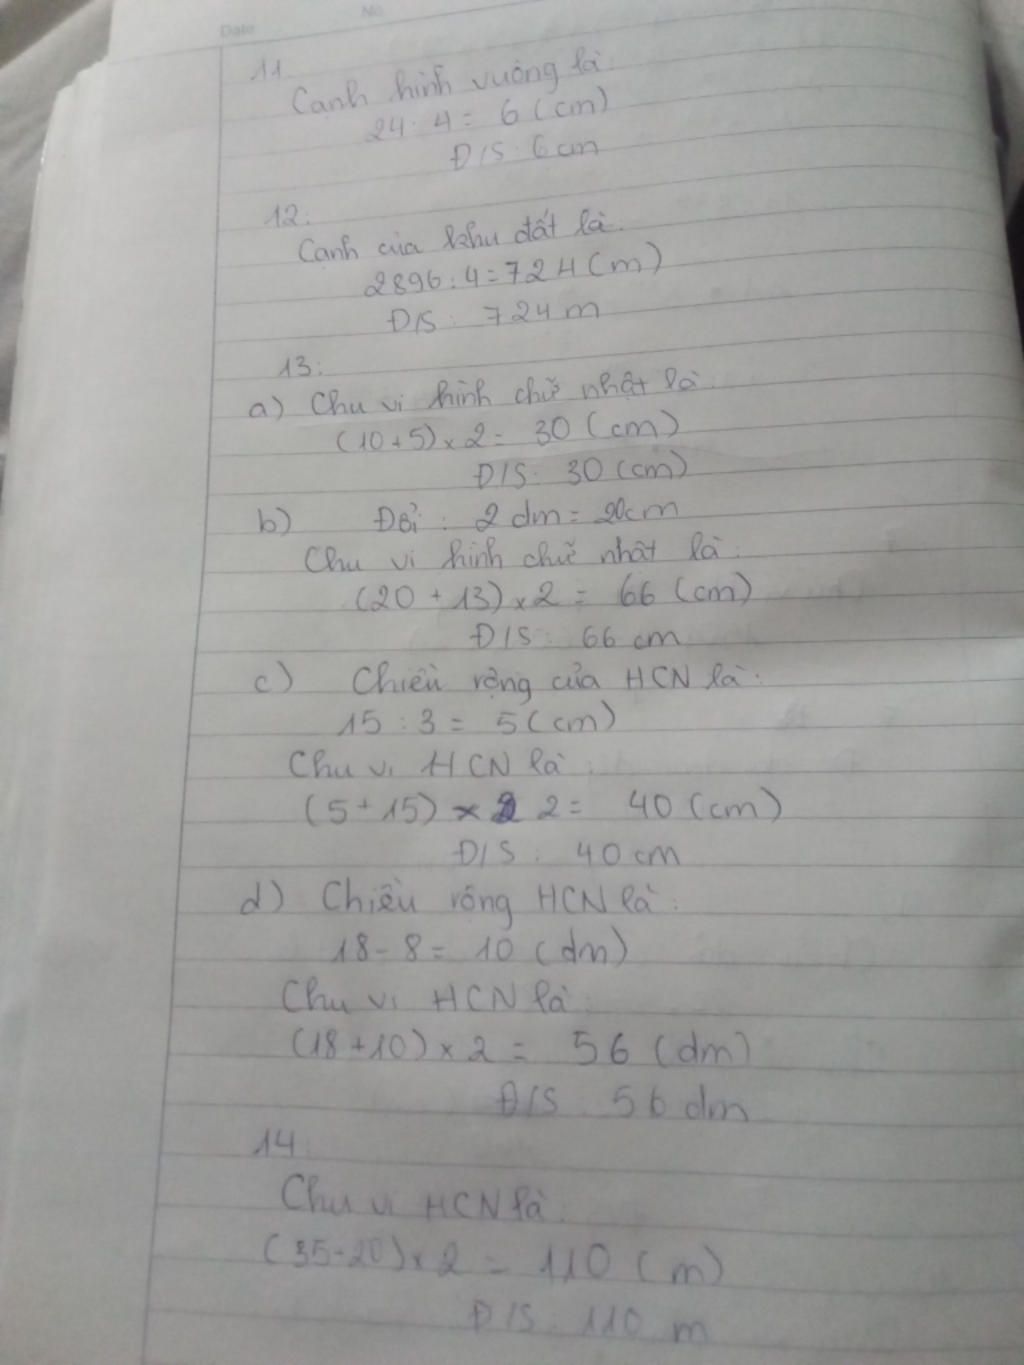 Date No
11
Cạnh hình vuông là:
24 : 4 = 6 (cm)
Đ/S : 6 cm
12:
Cạnh của khu đất là:
2896 : 4 = 724 (m)
Đ/S : 724 m
13:
a) Chu vi hình chữ nhật là:
(10 + 5) x 2 = 30 (cm)
Đ/S : 30 (cm)
b) Đổi : 2 dm = 20cm
Chu vi hình chữ nhật là:
(20 + 13) x 2 = 66 (cm)
Đ/S : 66 cm
c) Chiều rộng của HCN là:
15 : 3 = 5 (cm)
Chu vi HCN là:
(5 + 15) x 2 = 40 (cm)
Đ/S : 40 cm
d) Chiều rộng HCN là:
18 - 8 = 10 (dm)
Chu vi HCN là:
(18 + 10) x 2 = 56 (dm)
Đ/S : 56 dm
14:
Chu vi HCN là:
(35 - 20) x 2 = 110 (m)
Đ/S : 110 m